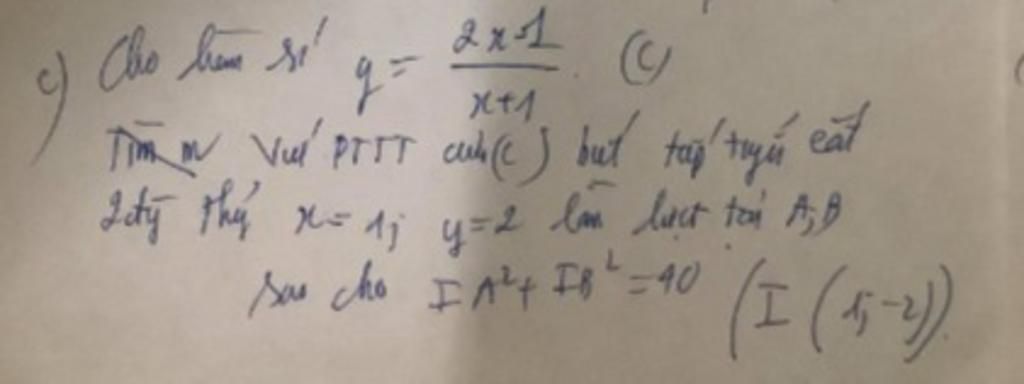 c) Cho hàm số y = \frac{2x-1}{x+1}. (C)
Tìm m Viết PTTT của (C) biết tiếp tuyến cắt
2 đg thg x = 1; y = 2 lần lượt tại A; B
sao cho IA² + IB² = 40 (I (1; -2)).